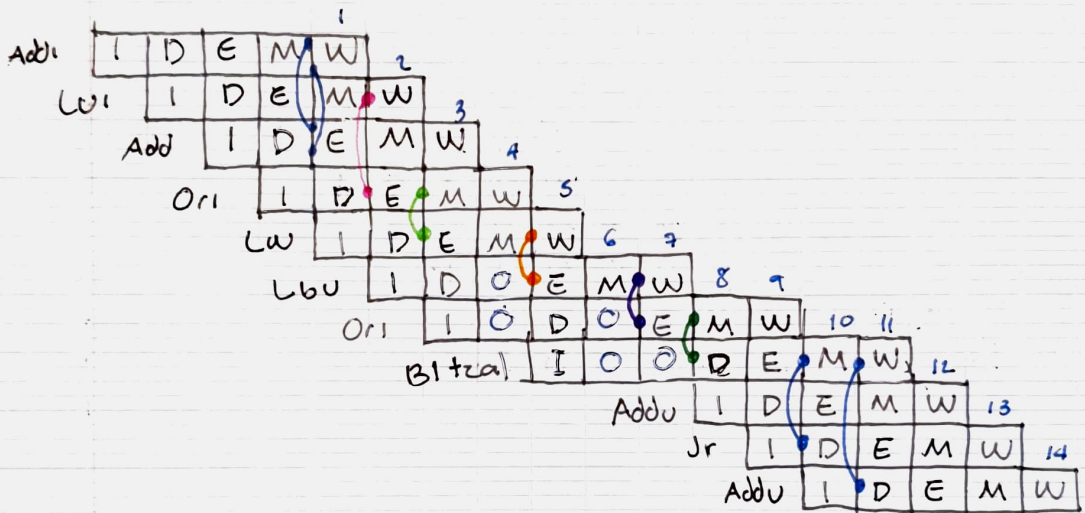 1
Addi I D E M W
2
Lui I D E M W
3
Add I D E M W
4
Ori I D E M W
5
Lw I D E M W 6 7
Lbu I D O E M W 8 9
Ori I O D O E M W 10 11
Bltzal I O O D E M W 12
Addu I D E M W 13
Jr I D E M W 14
Addu I D E M W